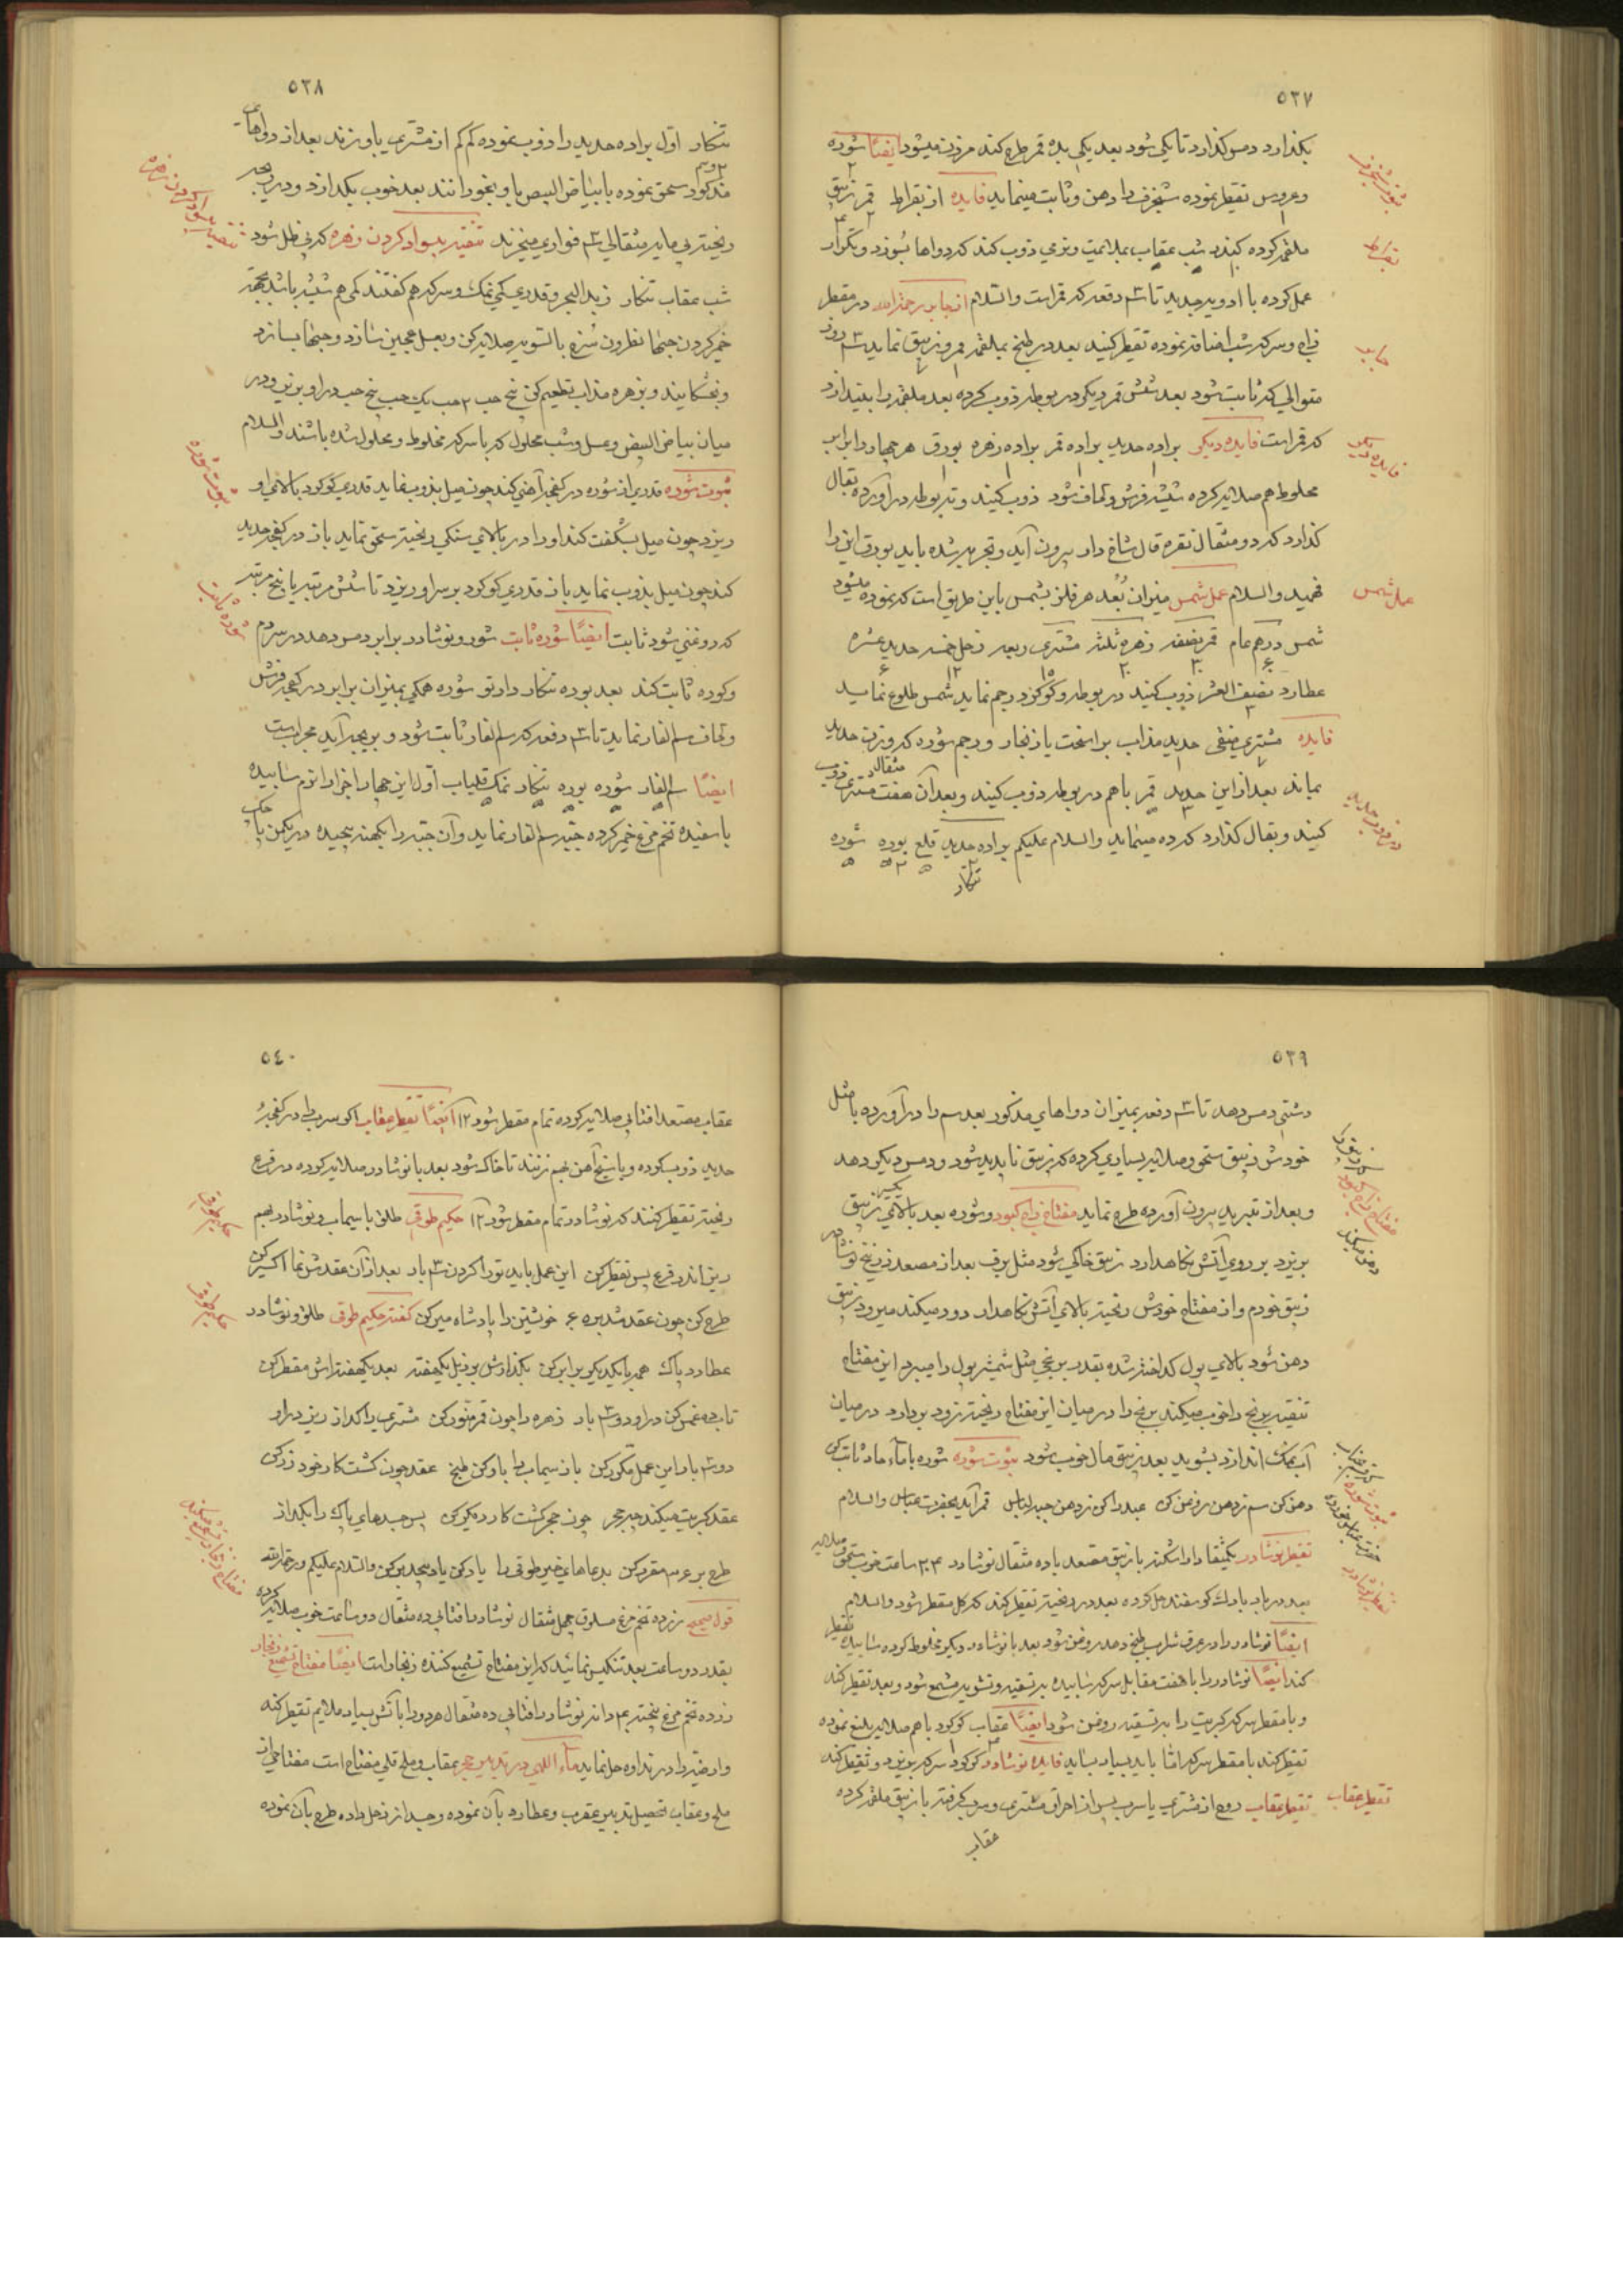 ٥٣٧
بکذارد دمس کذارد تا یکی شود بعد یکی بده قمر طرح کند مرزن میشود ایضًا شوره
وعروس تقطیر نموده شنجرف را دهن وثابت مینماید فایده از بقراط قمر زیبق
ملغمه کرده کیند شب عقاب بملایمت ونرمی ذوب کند که دواها بسوزد وتکرار
عمل کرده با ادویه جدید تا ٣ دفعه که قمراست والسّلام از جابر رحمة الله در مقطر
زاج وسرکه شب اضافه نموده تقطیر کنید بعد در طبخ بملغمه قمر وزیبق نماید ٣ روز
متوالی که ثابت شود بعد شش قمر دیکر در بوطه ذوب کرده بعد ملغمه را ایندازد
که قمراست فایده دیکر براده حدید براده قمر براده زهره بورق هر چهار را برابر
مخلوط هم صلایه کرده شیشه فرش ولحاف شود ذوب کنید وتبر بوطه در آورده بقال
کذارد که دو مثقال نقره قال شاخ دار بیرون آید وتجربه شده باید بورق این را
فهمید والسلام عمل شمس میزان بُعد هر فلز بشمس باین طریق است که نموده میشود
شمس درهم عام قمر نصفه زهره ثلثه مشتری ربعه زحل خمسه حدید عشره
عطارد نصیف العشر ذوب کنید در بوطه وکوکرد رجم نماید شمس طلوع نماید
فایده مشتری منقی حدید مذاب براسخت یا زنجار ورجم شوره که وزن حدید
بماند بعد از این حدید قمر باهم در بوطه ذوب کیند وبعد آن هفت مثقال مشتری ذوب
کنید وبقال کذارد که ده مینماید والسلام علیکم براده حدید قلع بوره شوره
تنکار
بقراط
جابر
فایده دیکر
عمل شمس
٥٣٨
تنکار اوّل براده حدید را ذوب نموده کم کم از مشتری باو بزند بعد از دواهای
مذکور سحق نموده با بیاض البیض باو بخورانند بعد خوب بکدازد ودر ریجه
ریخته بی مایه مثقالی ٣ قواری میخزند تنقیه بسواد کردن زهره که بی ظل شود
شب عقاب تنکار زبد البحر وقدری کمی نمک وسرکه هم کفتند کمی هم شیشه باشد بجهة
خمیر کردن حبها نطرون سُرخ بالسّویه صلایه کن وبعسل عجین سازد وحبها بسازد
وبخشکانید وبزهره مذاب تطعیم کن پنج حب ٢ حب یک حب پنج حب در او بزیر ودر
میان بیاض البیض وعسل وشب محلول که با سرکه مخلوط ومحلول شده باشند والسلام
ثبوت شوره قدری از شوره در کفچه آهنی کند چون میل بذوب نماید قدری کوکرد بالای او
ریزد چون میل بشکفت کند او را در بالای سنکی ریخته سحق نماید باز در کفچه حدید
کند چون میل بذوب نماید باز قدری کوکرد برسر او ریزد تا شش مرتبه یا پنج مرتبه
که روغنی شود ثابت ایضًا شوره ثابت شوره ونوشادر برابر دمس دهد در سردم
وکوره ثابت کند بعد بوره تنکار دارتو شوره همکی بمیزان برابر در کفچه فرش
ولحاف سم الفار نماید تا ٣ دفعه که سم الفار ثابت شود و بریجه آید مجرّبست
ایضًا سم الفار شوره بوره تنکار نمک قلیاب اوّل این چهار اجزا را نرم سابیده
با سفیده تخم مرغ خمیر کرده حبّه سم الفار نماید وآن حبّه را بکهنه پیچیده در یکمن پاچک
ثبوت شوره
شوره ثابت
٥٣٩
دشتی دمس دهد تا ٣ دفعه بمیزان دواهای مذکور بعد سم را در آورده با مثل
خودش زیبق سحق وصلایه بسیاری کرده که زیبق ناپدید شود ودمس دیکر دهد
وبعد از تبرید بیرون آورده طرح نماید مفتاح زاج کبود وشوره بعد بالای زیبق
بریزد بر روی آتش نکاهدارد زیبق خاکی شود مثل برف بعد از مصعد زرنیخ نوشادر
زیبق خودم واز مفتاح خودش ریخته بالای آتش نکاهدار دود میکند میرود زیبق
دهن شود بالای پول کداخته شده بقدر برنجی مثل شمشیر پول را میبرد این مفتاح
تنقیه برنج را خوب میکند برنج را در میان این مفتاح ریخته زود بردارد در میان
آب نمک اندازد بشوید بعد زیبق مال خوب شود ثبوت شوره شوره با ماء حاد ثابت کن
دهن کن سم زدهن روغن کن عبد را کن زدهن جید لباس قمر آید بحضرت عباس والسلام
تقطیر نوشادر یکمثقال دار اشکنه با زیبق مصعد با ده مثقال نوشادر ٢٠٣ ساعت خوب سحق وصلایه
بعد در باد بادل کوسفند حل کرده بعد در ریخته تقطیر کند که کل مقطر شود والسلام
ایضًا نوشادر را در عرق شراب طبخ دهد روغن شود بعد با نوشادر دیکر مخلوط کرده سابیده تقطیر
کند ایضًا نوشادر را با هفت مقابل سرکه سابیده بتسقیه وتشویه مشمع شود وبعد تقطیر کند
وبا مقطر سرکه کبریت را بتسقیه روغن شود ایضًا عقاب کوکرد باهم صلایه بلیغ نموده
تقطیر کند با مقطر سرکه امّا باید بسیار بساید فایده نوشادر کوکرد سرکه بریزد وتقطیر کند
تقطیر عقاب روح از مشتری یا سرب پس از احراق مشتری وسرب کرفته با زیبق ملغمه کرده
عقاب
تقطیر نوشادر
تقطیر عقاب
٥٤٠
عقاب مصعد افتابی صلایه کرده تمام مقطر شود ١٢ ایضًا تقطیر عقاب اکر سرب را در کفچهٔ
حدید ذوب کرده وبا سیخ آهن بهم زنند تا خاک شود بعد با نوشادر صلایه کرده در قرع
ریخته تقطیر کنند که نوشادر تمام مقطر شود ١٢ حکیم طوقی طلق با سیماب ونوشادر بهم
ریز اندر قرع پس تقطیر کن این عمل باید تو را کردن ٣ بار بعد از آن عقدش نما اکسیر کن
طرح کن چون عقد شد بره خویشتن را پادشاه میر کن کفته حکیم طوقی طلق ونوشادر
عطارد پاک همه با یکدیکر برابر کن بکذارش بر زبل یکهفته بعد یکهفته اش مقطر کن
تابده غمس کن در او دو ٣ بار زهره را چون قمر منوّر کن مشتری را کداز ریز در او
دو ٣ بار این عمل مکرّر کن باز سیماب را بار کن طبخ عقد چون کشت کار خود زر کن
عقد کبریت میکند حجر چون حجر کشت کار دیکر کن پس جسدهای پاک را بکداز
طرح بر عرسه مقرر کن بدعاهای خیر طوقی را یاد کن یاد بیحد بر کن والسلام علیکم ورحمة الله
قول صحیح زرده تخم مرغ مسلوق چهل مثقال نوشادر افتابی ده مثقال دو ساعت خوب صلایه کرده
بقدر دو ساعت بعد تنکیس نمائید که این مفتاح تشمیع کننده زنجار است ایضًا مفتاح تشمیع زنجار
زرده تخم مرغ پخته ٣٠ دانه نوشادر افتابی ده مثقال هردو را با آتش بسیار ملایم تقطیر کند
وارضیّه را در نداوه حل نماید ماء اللهی در تدبیر حجر بعقاب وملح قلی مفتاح است مفتاحی از
ملح وعقاب تحصیل تدبیر عقرب وعطارد بآن نموده وجسد از زحل داده طرح بآن نموده
حکیم طوقی
حکیم طوقی